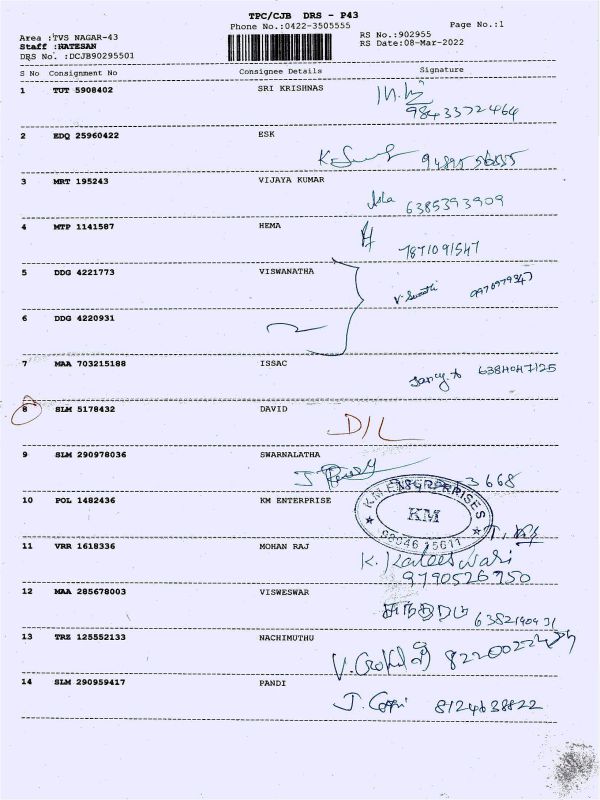 TPC/CJB DRS - P43
Phone No.:0422-3505555 Page No.:1
Area :TVS NAGAR-43 RS No.:902955
Staff :NATESAN RS Date:08-Mar-2022
DRS No. :DCJB90295501
S No Consignment No Consignee Details Signature
1 TUT 5908402 SRI KRISHNAS
9843372464
2 EDQ 25960422 ESK
3 MRT 195243 VIJAYA KUMAR
6385393909
4 MTP 1141587 HEMA
7871091547
5 DDG 4221773 VISWANATHA
V. Sumathi
6 DDG 4220931
7 MAA 703215188 ISSAC
8 SLM 5178432 DAVID
D/L
9 SLM 290978036 SWARNALATHA
3668
10 POL 1482436 KM ENTERPRISE
K.M ENTERPRISES
KM
98046 15611
11 VRR 1618336 MOHAN RAJ
K. Kaleeswari
9790526750
12 MAA 285678003 VISWESWAR
13 TRZ 125552133 NACHIMUTHU
14 SLM 290959417 PANDI
J. Gopi 8124638822